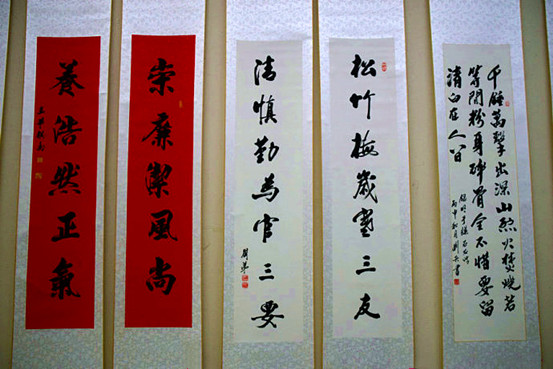 千錘萬擊出深山烈火焚燒若
等閒粉身碎骨全不惜要留
清白在人間
松竹梅歲寒三友
清慎勤為官三要
崇廉潔風尚
養浩然正氣